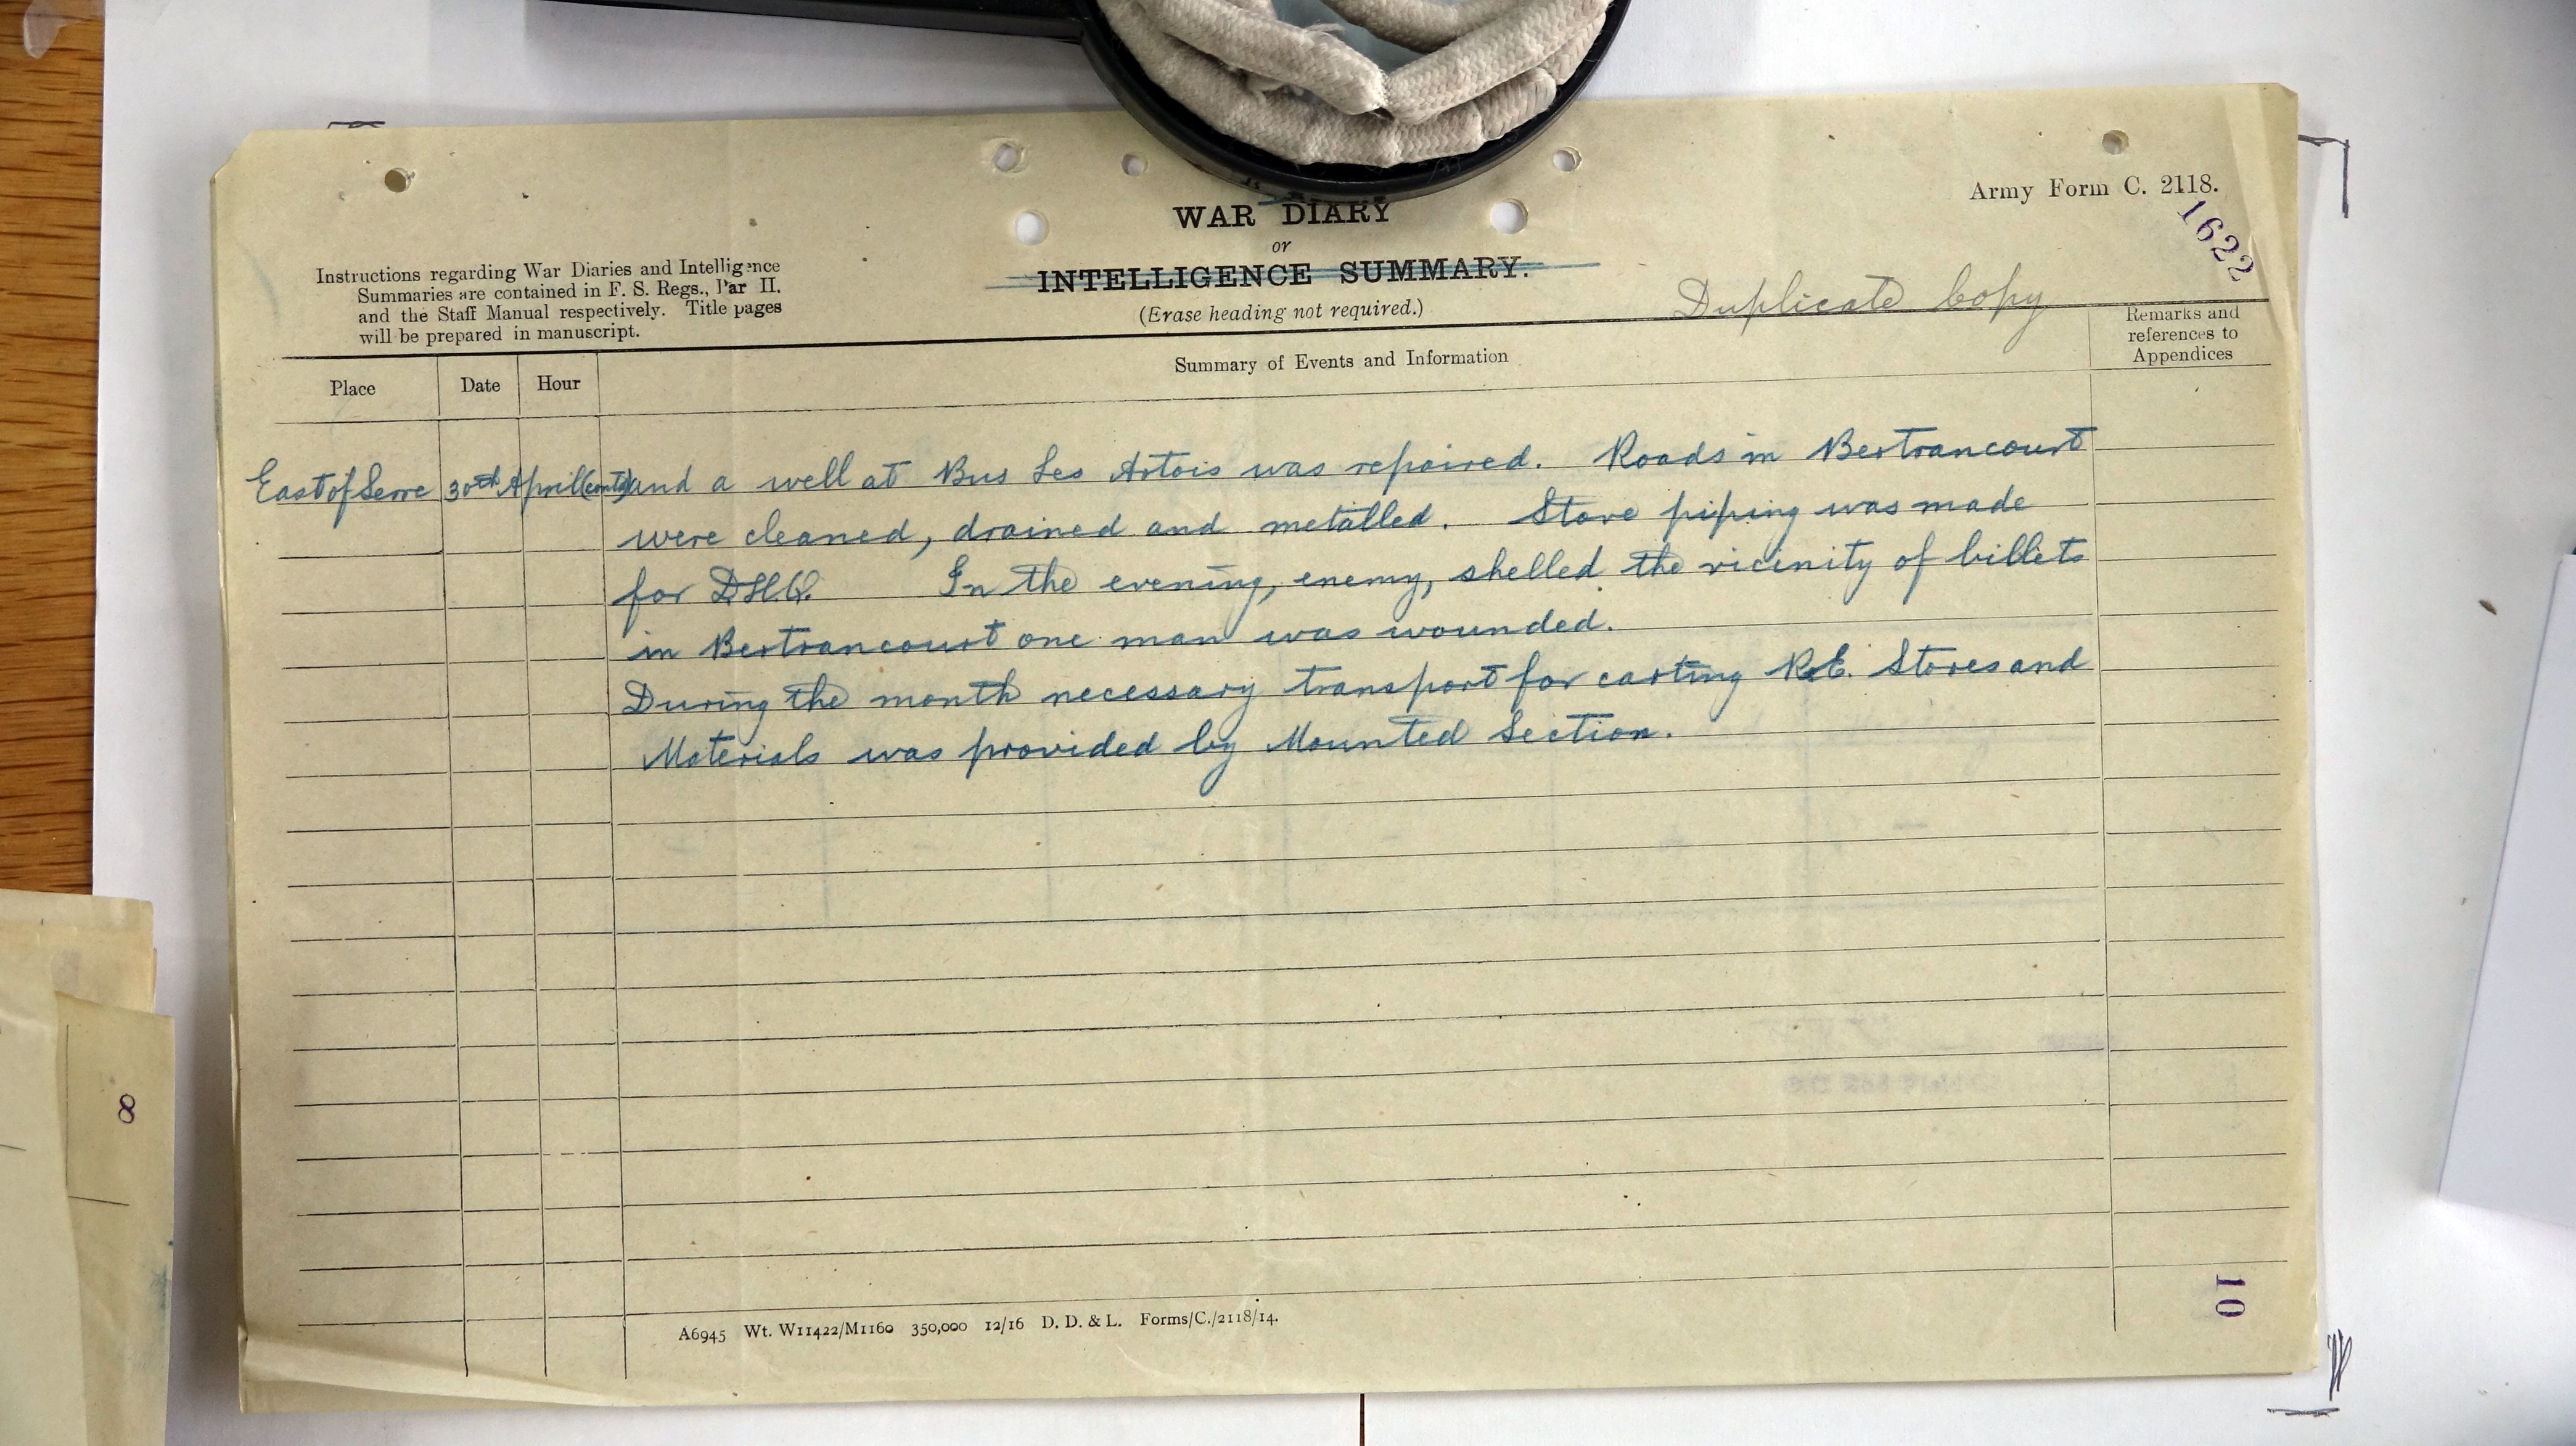 Army Form C. 2118.
1622
WAR DIARY
or
INTELLIGENCE SUMMARY.
(Erase heading not required.)
Instructions regarding War Diaries and Intelligence
Summaries are contained in F. S. Regs., Par II.
and the Staff Manual respectively. Title pages
will be prepared in manuscript.
Duplicate Copy
Place
Date
Hour
Summary of Events and Information
Remarks and
references to
Appendices
East of Serre 30th April (contd) and a well at Bus Les Artois was repaired. Roads in Bertrancourt
were cleaned, drained and metalled. Stove piping was made
for D.H.Q. In the evening, enemy, shelled the vicinity of billets
in Bertrancourt one man was wounded.
During the month necessary transport for carting R.E. Stores and
Materials was provided by Mounted Section.
A6945 Wt. W11422/M1160 350,000 12/16 D. D. & L. Forms/C./2118/14.
10
8